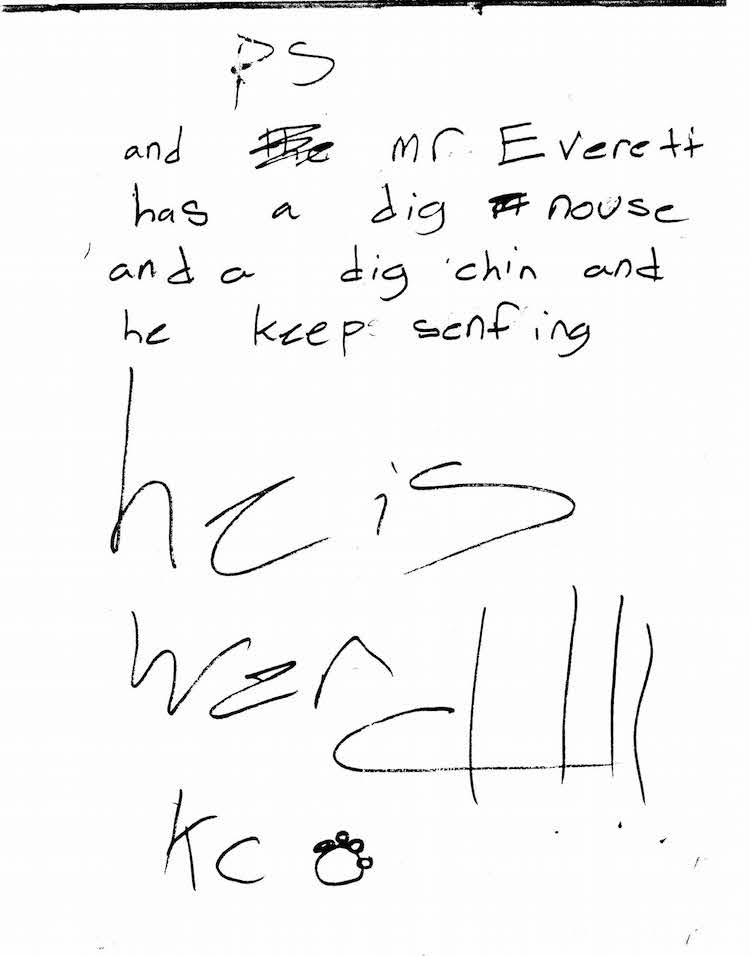 PS
and mr Everett
has a dig nouse
and a dig chin and
he keeps senfing
he is
werd!!!
KC